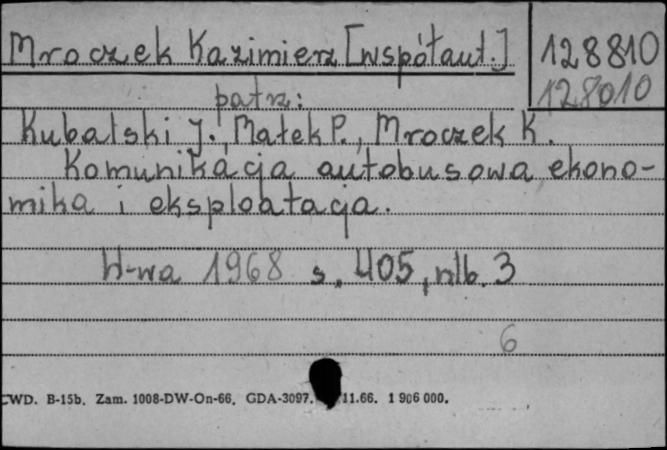 Mroczek Kazimierz [współaut.]
128810
128010
patrz:
Kubalski J., Małek P., Mroczek K.
Komunikacja autobusowa, ekono-
mika i eksploatacja.
W-wa 1968 s. 405, nlb. 3
6
CWD. B-15b. Zam. 1008-DW-On-66. GDA-3097. 11.66. 1 906 000.